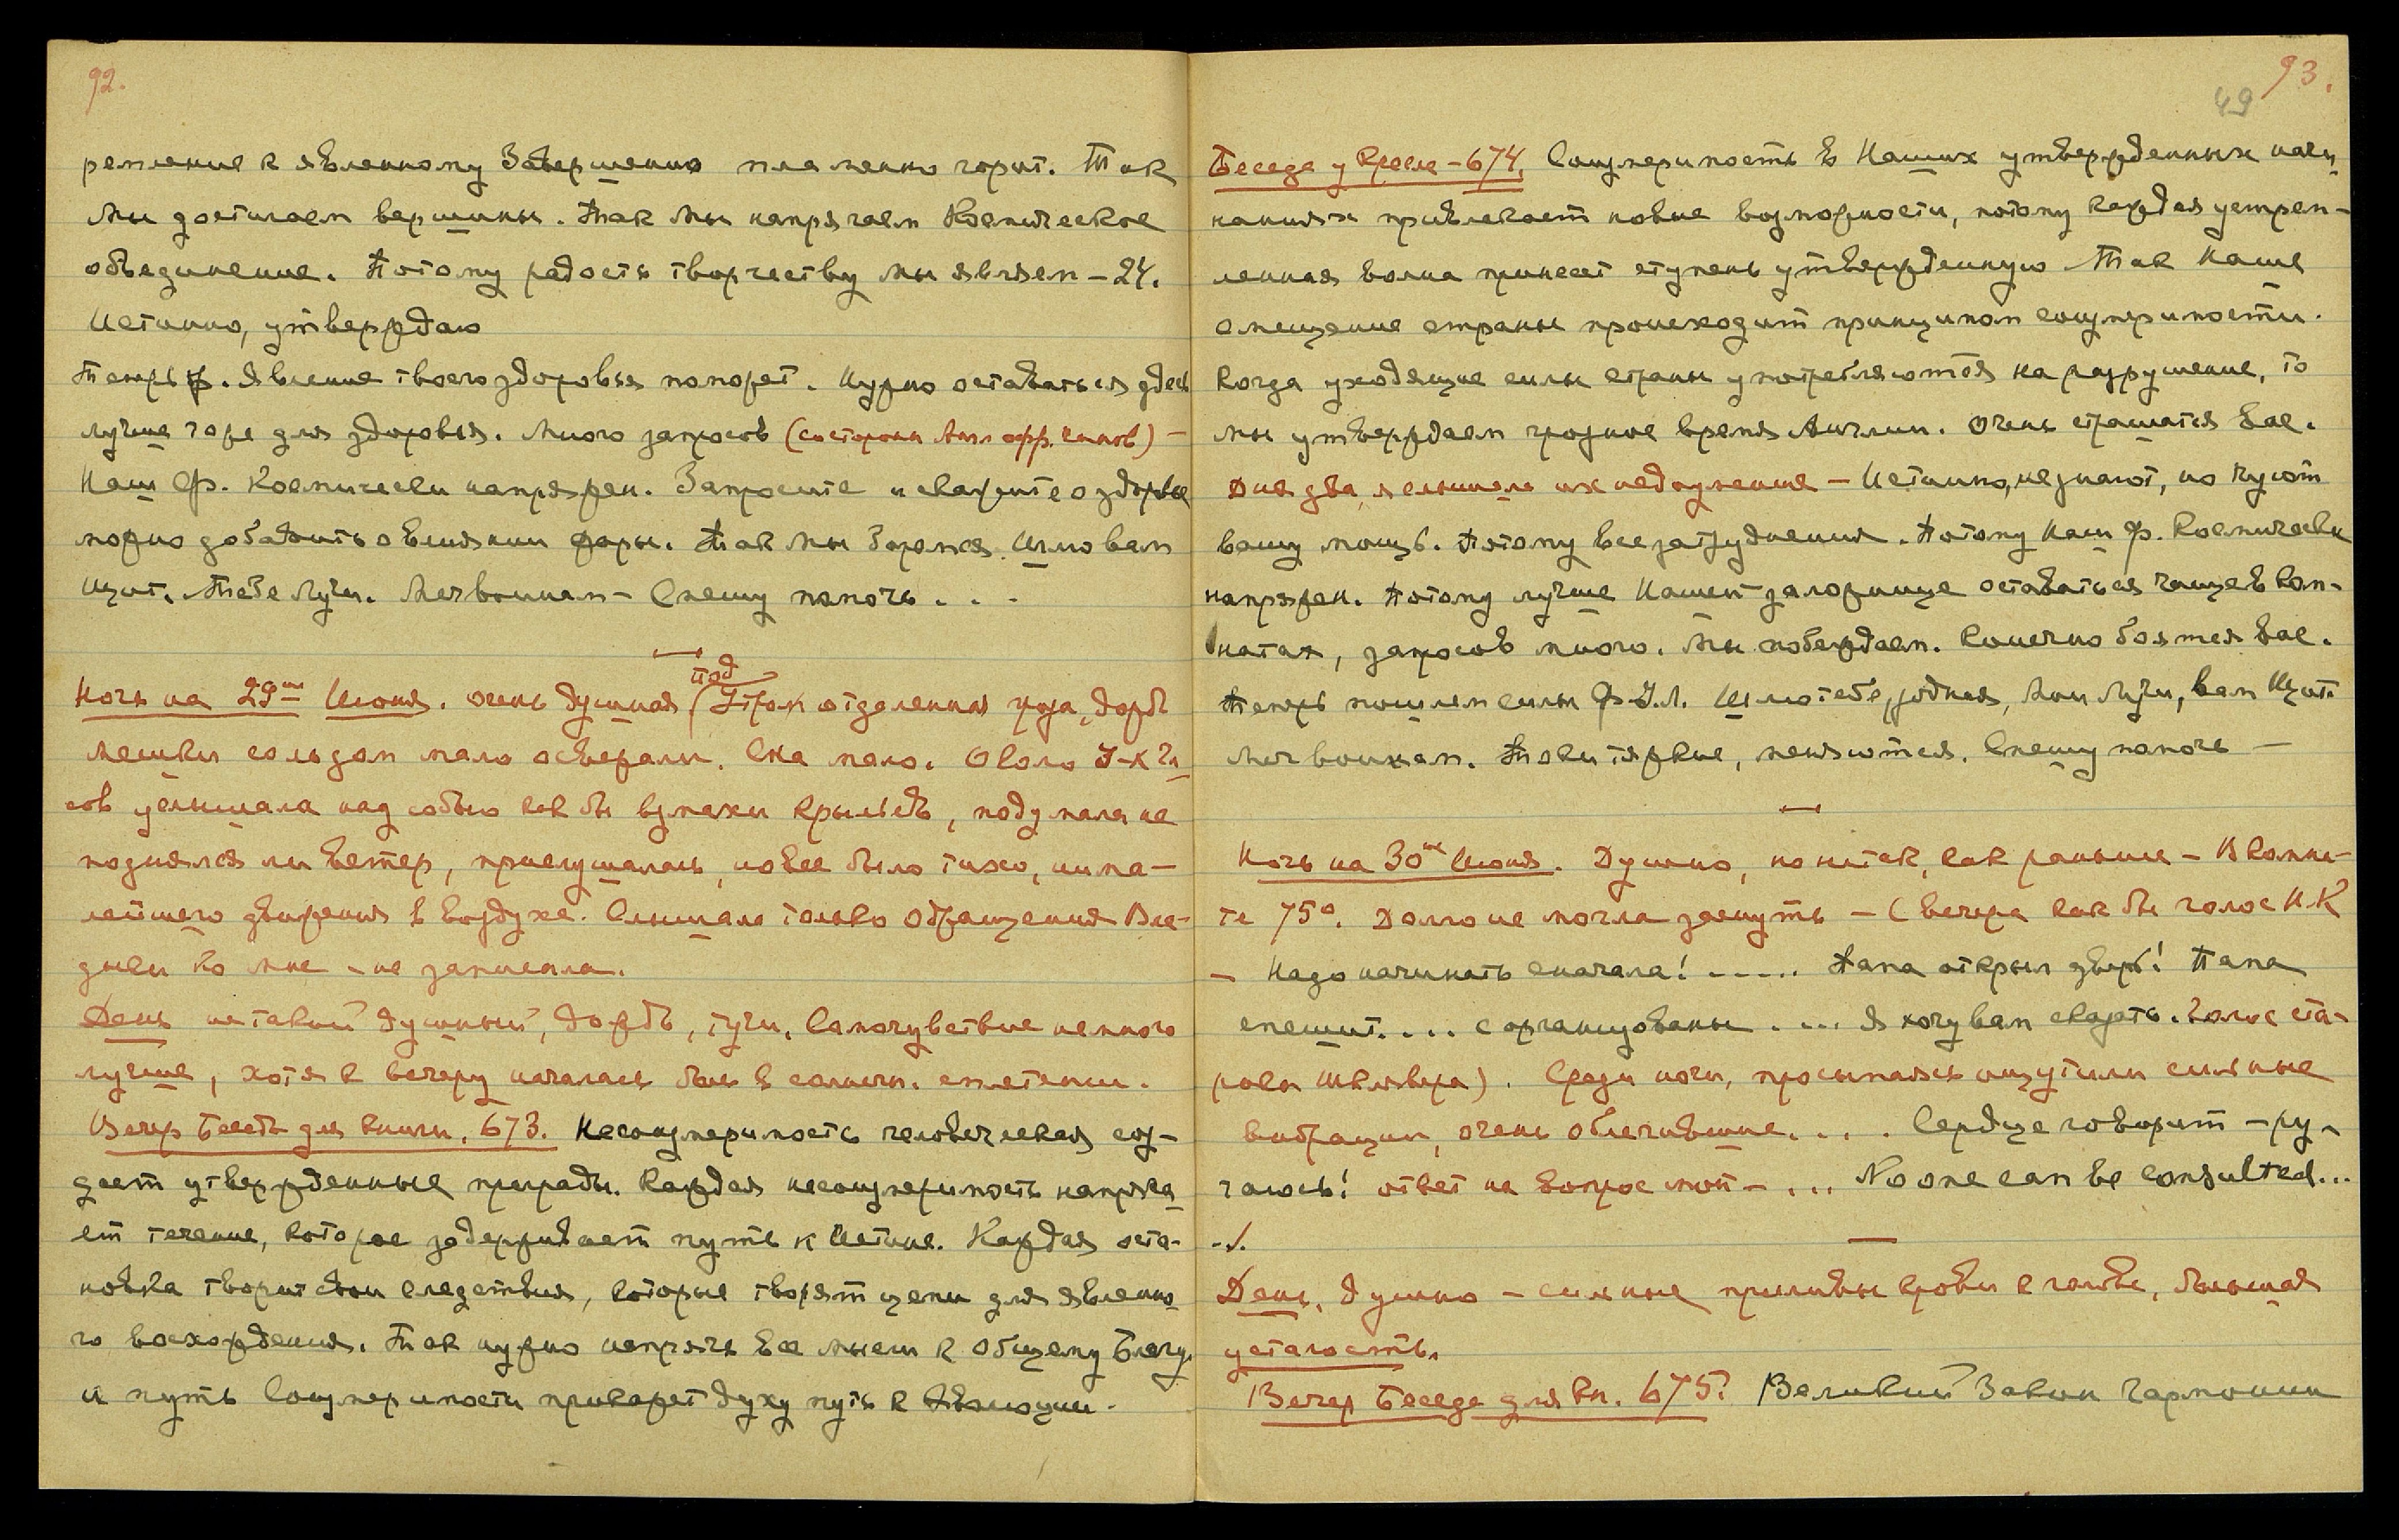 92.
ремление к явленному Завершению пламенно горит. Так
Мы достигаем вершины. Так Мы напрягаем Космическое
объединение. Потому радость творчеству Мы являем – 24.
Истинно, утверждаю
Теперь ф. Явление твоего здоровья поможет. Нужно оставаться здесь
лучше горе для здоровья. Много запросов (со стороны Англ офф. чинов) –
Наш ф. Космически напряжен. Запросите и скажите о здоровье
можно добавить о влиянии жары. Так Мы боремся. Шлю вам
Щит. Тебе Лучи. Меч воинам – Спешу помочь . . .
Ночь на 29ое Июня. очень душная (под Утро отдаленная гроза, дождь
мешки со льдом мало освежали. Сна мало. Около 3-х ча
сов услышала над собою как бы взмахи крыльев, подумала не
поднялся ли ветер, прислушалась, но все было тихо, ни ма–
лейшего движения в воздухе. Слышала только обращения Вла–
дыки ко мне – не записала.
День не такой душный, дождь, тучи. Самочувствие немного
лучше, хотя к вечеру началась боль в солнечн. сплетении.
Вечер Беседа для книги. 673. Несоизмеримость человеческая соз–
дает утвержденные преграды. Каждая несоизмеримость напряга
ет течение, которое задерживает путь к Истине. Каждая оста–
новка творит свои следствия, которые творят цепи для явленно
го восхождения. Так нужно напрячь все мысли к Общему Благу
и путь Соизмеримости прикажет духу путь к Эволюции.
93.
49
Беседа у Кресла – 674. Соизмеримость в Наших утвержденных начи
наниях привлекает новые возможности, потому каждая устрем–
ленная волна принесет ступень утвержденную Так Наше
смещение страны происходит принципом соизмеримости.
Когда уходящие силы страны употребляются на разрушение, то
мы утверждаем грозное время Англии. Очень страшатся вас.
Дня два, я слышала их недоумение – Истинно, не знают, но чуют
вашу мощь. Потому все затруднения. Потому Наш ф. Космически
напряжен. Потому лучше Нашей заложнице оставаться чаще в ком–
натах, запросов много. Мы побеждаем. Конечно боятся вас.
Теперь пошлем силы Ф. У. Л. Шлю тебе, родная, Мои Лучи, вам Щит
Меч воинам. Токи тяжкие, меняются. Спешу помочь —
Ночь на 30ое Июня. Душно, но не так, как раньше – В комна–
те 75°. Долго не могла заснуть – (вечера как бы голос Н.К
– Надо начинать сначала! ----.. Папа открыл дверь! Папа
спешит. . . . с организованы . . .. Я хочу вам сказать. Голос ста–
росы Шклявера). Среди ночи, просыпаясь ощутили сильные
вибрации, очень облегчившие. . . . Сердце говорит – ру–
чаюсь! ответ на вопрос мой – ... No one can be consulted...
День. Душно – сильные приливы крови к голове, большая
усталость.
Вечер Беседа для кн. 675. Великий Закон Гармонии